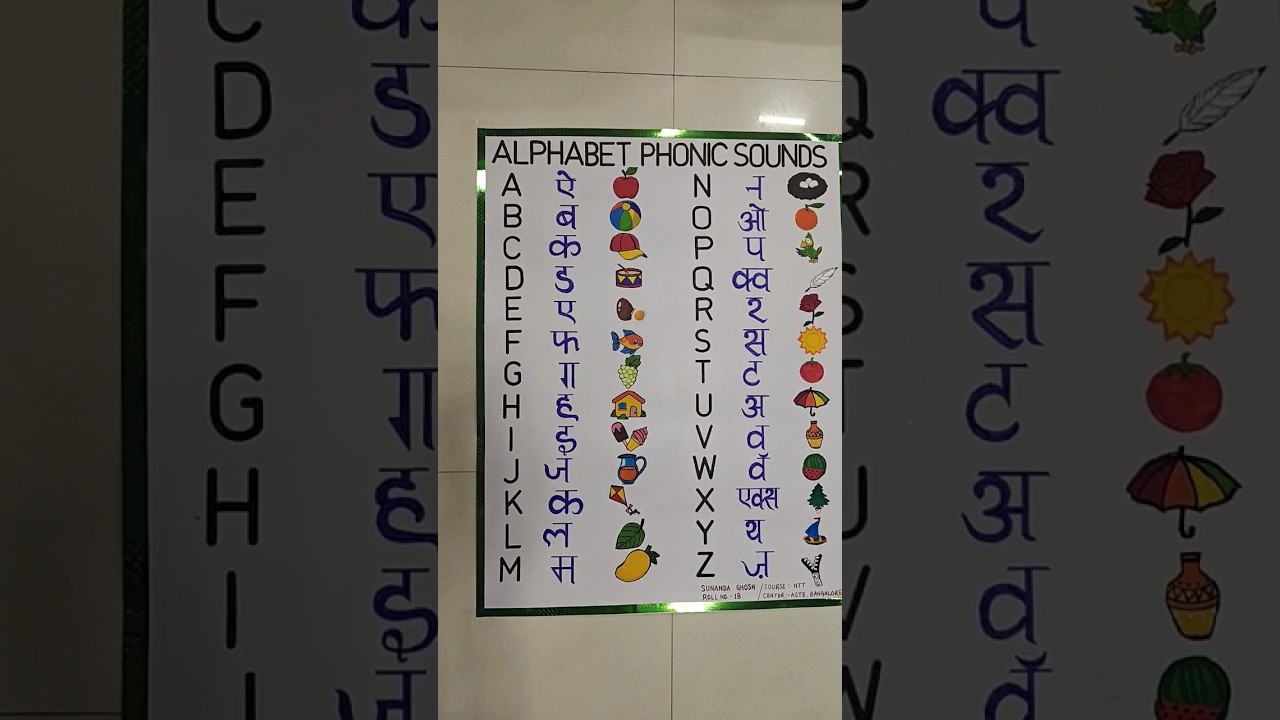 ALPHABET PHONIC SOUNDS
A ऐ N न
B ब O ओ
C क P प
D ड Q क्व
E ए R र
F फ S स
G ग T ट
H ह U अ
I इ V व
J ज W वॅ
K क X एक्स
L ल Y थ
M म Z ज़
SUNANDA GHOSH / COURSE :- NTT
ROLL NO - 18 / CENTER :- ASTE, BANGALORE